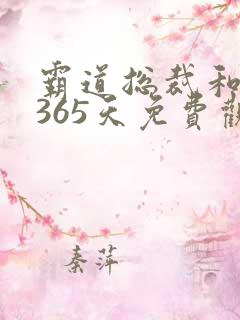 霸道总裁和
365天免費觀
秦萍